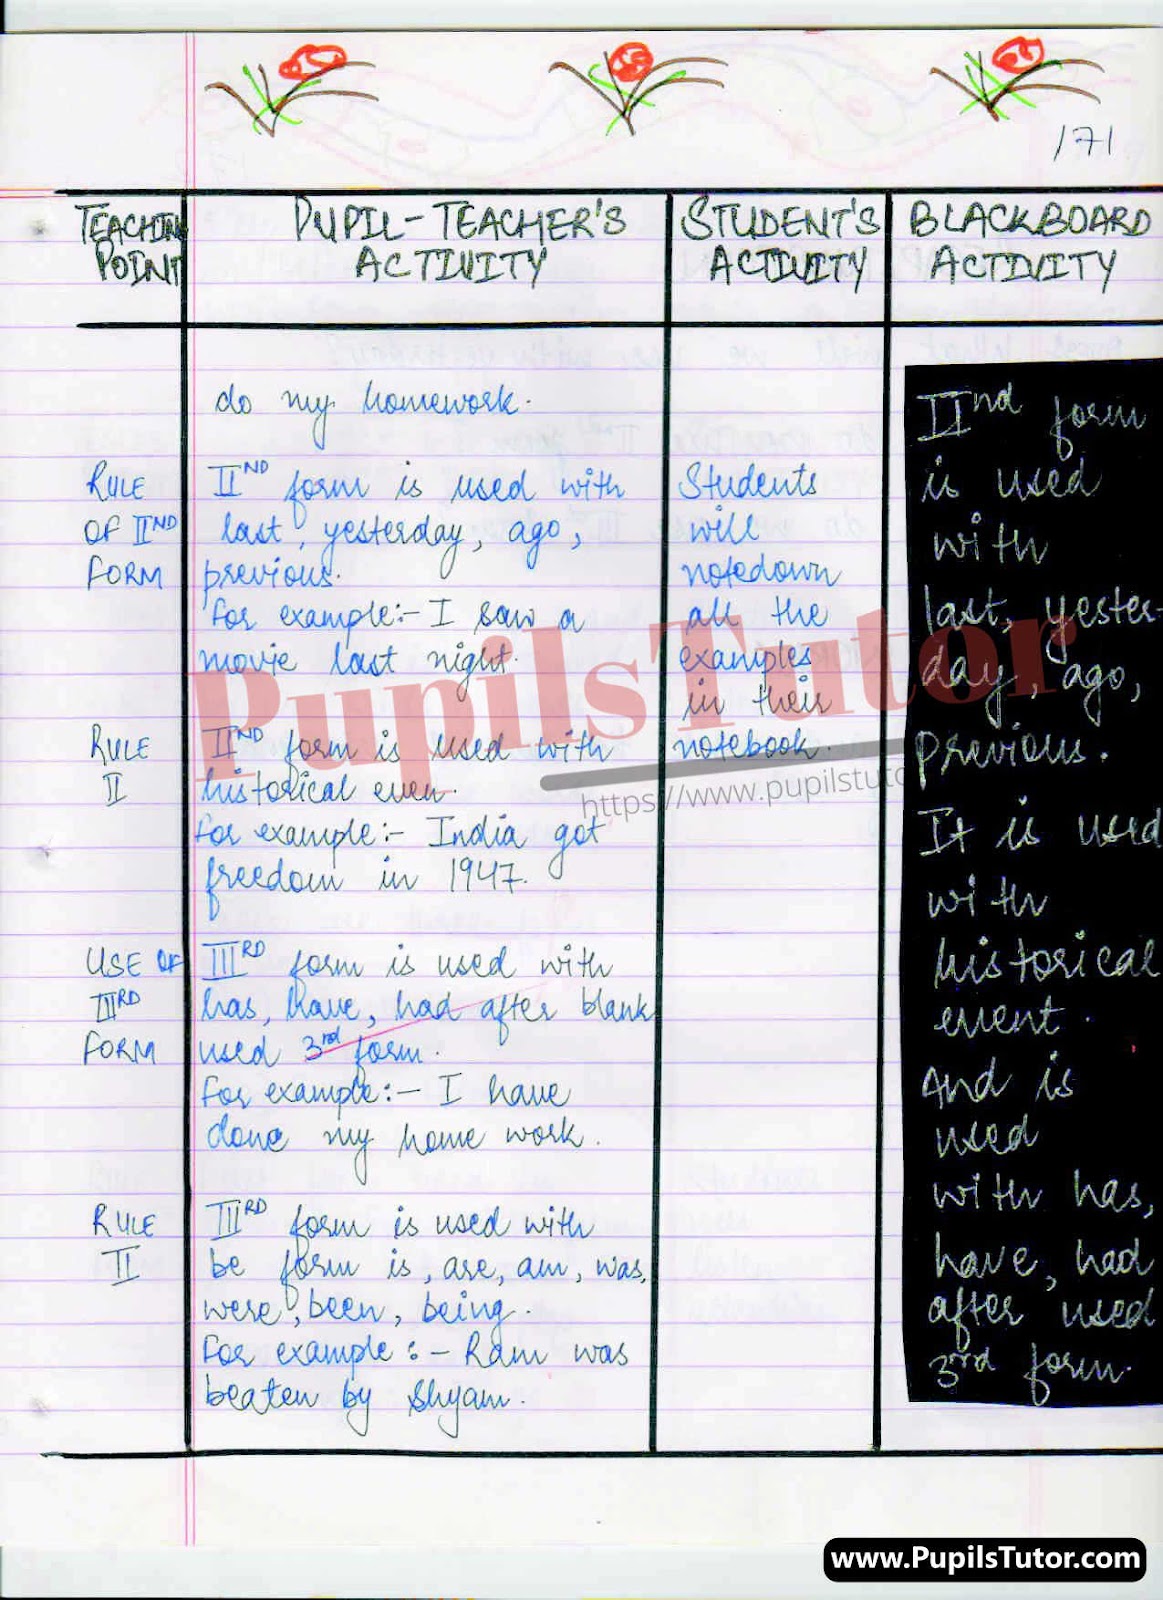 171
TEACHING
POINT
PUPIL-TEACHER'S
ACTIVITY
STUDENT'S
ACTIVITY
BLACKBOARD
ACTIVITY
do my homework.
RULE
OF IIND
FORM
IIND form is used with
last, yesterday, ago,
previous.
for example:- I saw a
movie last night.
RULE
II
IIND form is used with
historical even.
for example:- India got
freedom in 1947.
USE OF
IIIRD
FORM
IIIRD form is used with
has, have, had after blank
used 3rd form.
for example:- I have
done my home work.
RULE
II
IIIRD form is used with
be form is, are, am, was,
were, been, being.
for example:- Ram was
beaten by Shyam.
Students
will
notedown
all the
examples
in their
notebook.
IInd form
is used
with
last, yester-
day, ago,
previous.
It is used
with
historical
event.
And is
used
with has,
have, had
after used
3rd form.
PupilsTutor
https://www.pupilstuto
www.PupilsTutor.com